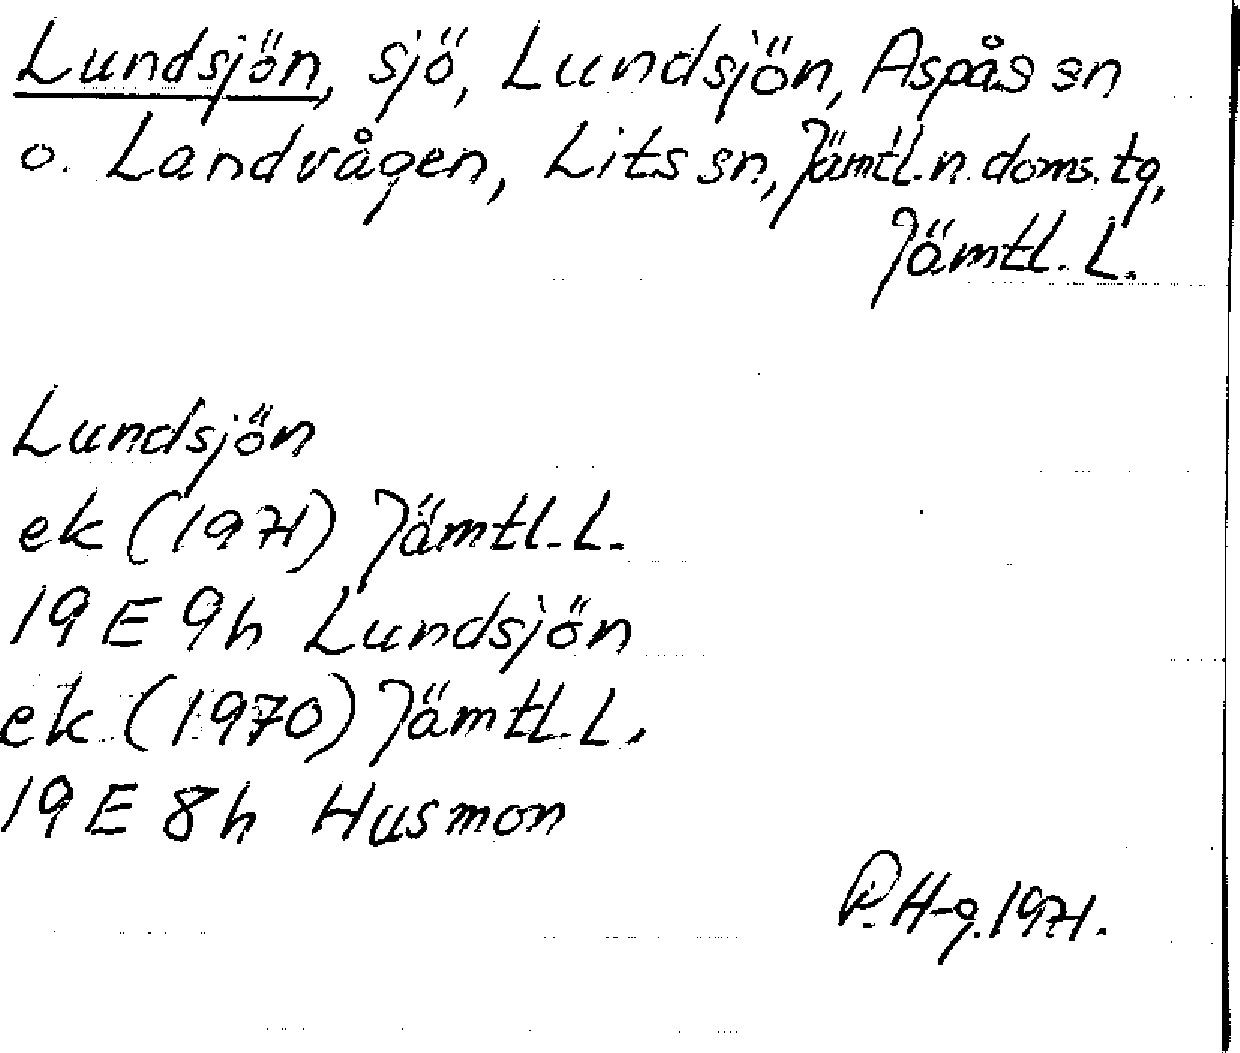 Lundsjön, sjö, Lundsjön, Aspås sn
o. Landvågen, Lits sn, Jämtl. n. doms. tg,
Jämtl. L.
Lundsjön
ek (1971) Jämtl. L.
19 E 9h Lundsjön
ek (1970) Jämtl. L.
19 E 8h Husmon
P. H-g. 1971.